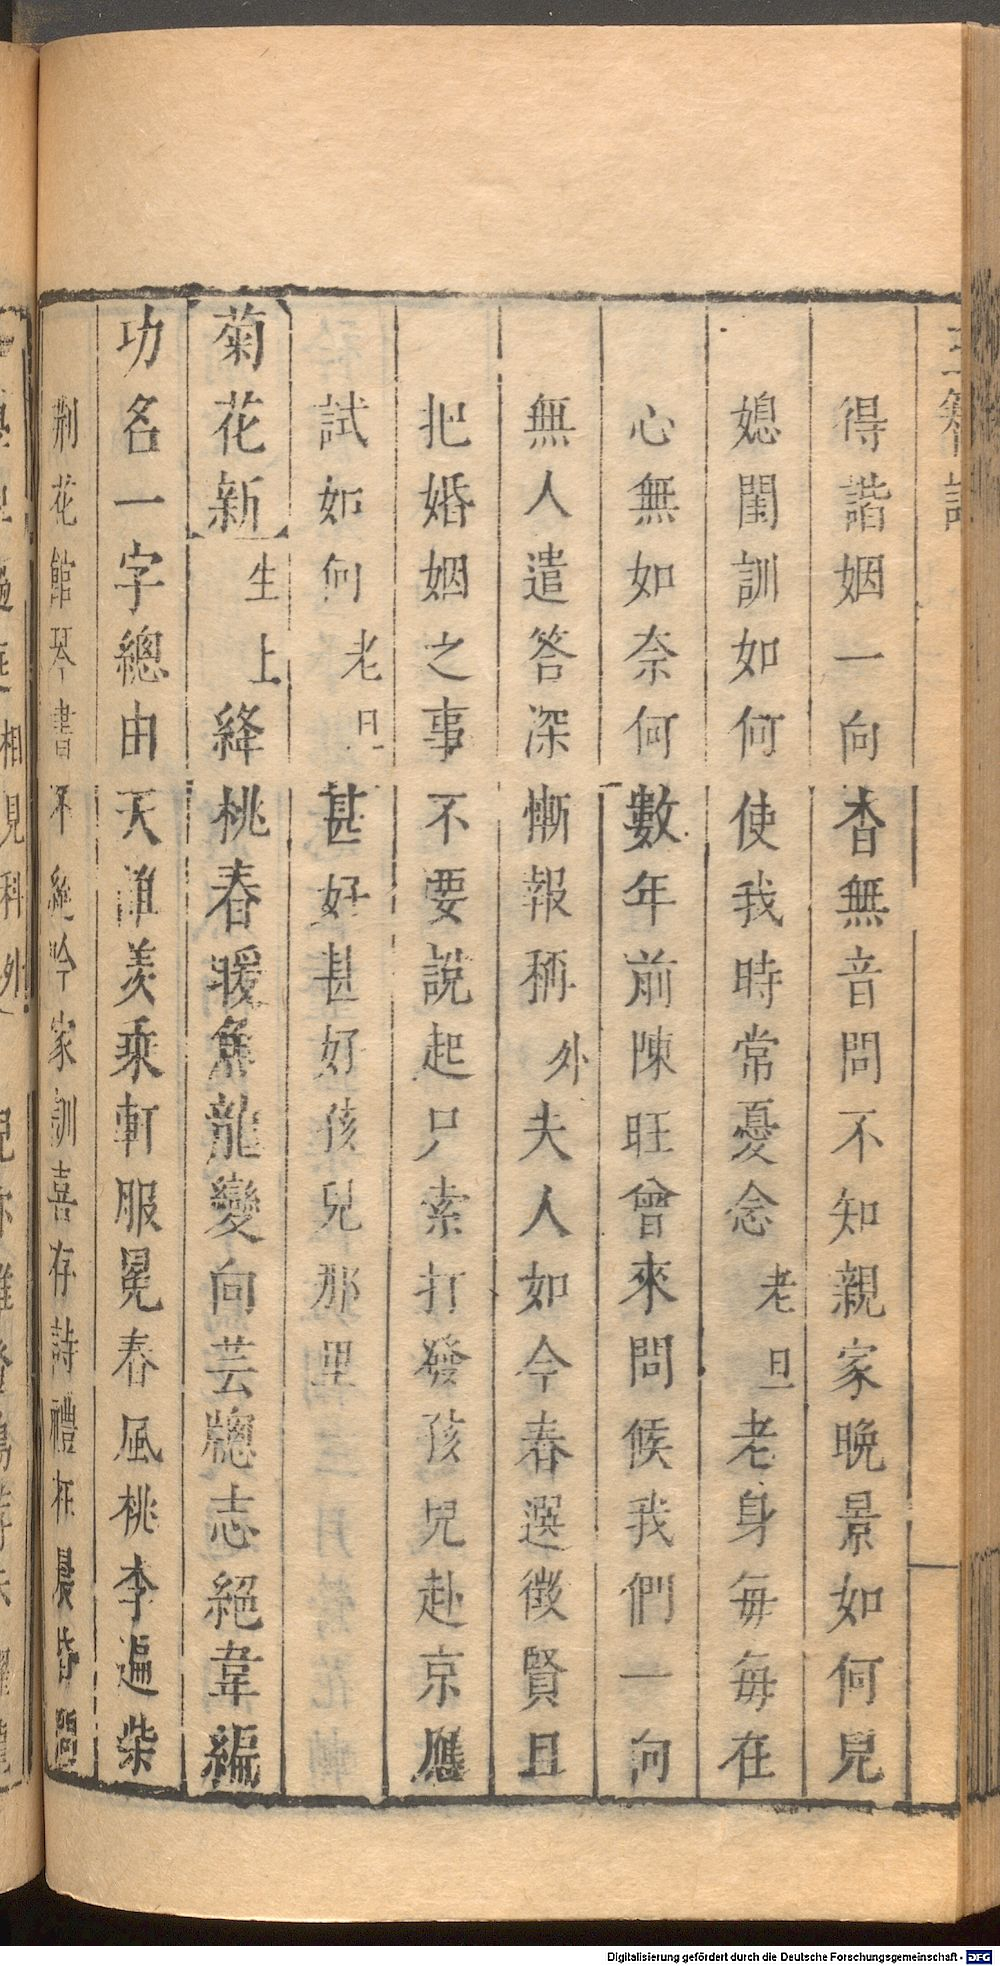 得諧姻一向杳無音問不知親家晩景如何兒
媳閨訓如何使我時常憂念老旦老身每每在
心無如奈何數年前陳旺曾來問候我們一向
無人遣答深慚報稱外夫人如今春選徵賢且
把婚姻之事不要說起只索打發孩兒赴京應
試如何老旦甚好甚好孩兒那里
菊花新生上絳桃春暖魚龍變向芸牎志絕韋編
功名一字總由天誰羡乘軒服冕春風桃李遍柴
荆花館琴書不絕吟家訓喜存詩禮在晨昏問
Digitalisierung gefördert durch die Deutsche Forschungsgemeinschaft - DFG